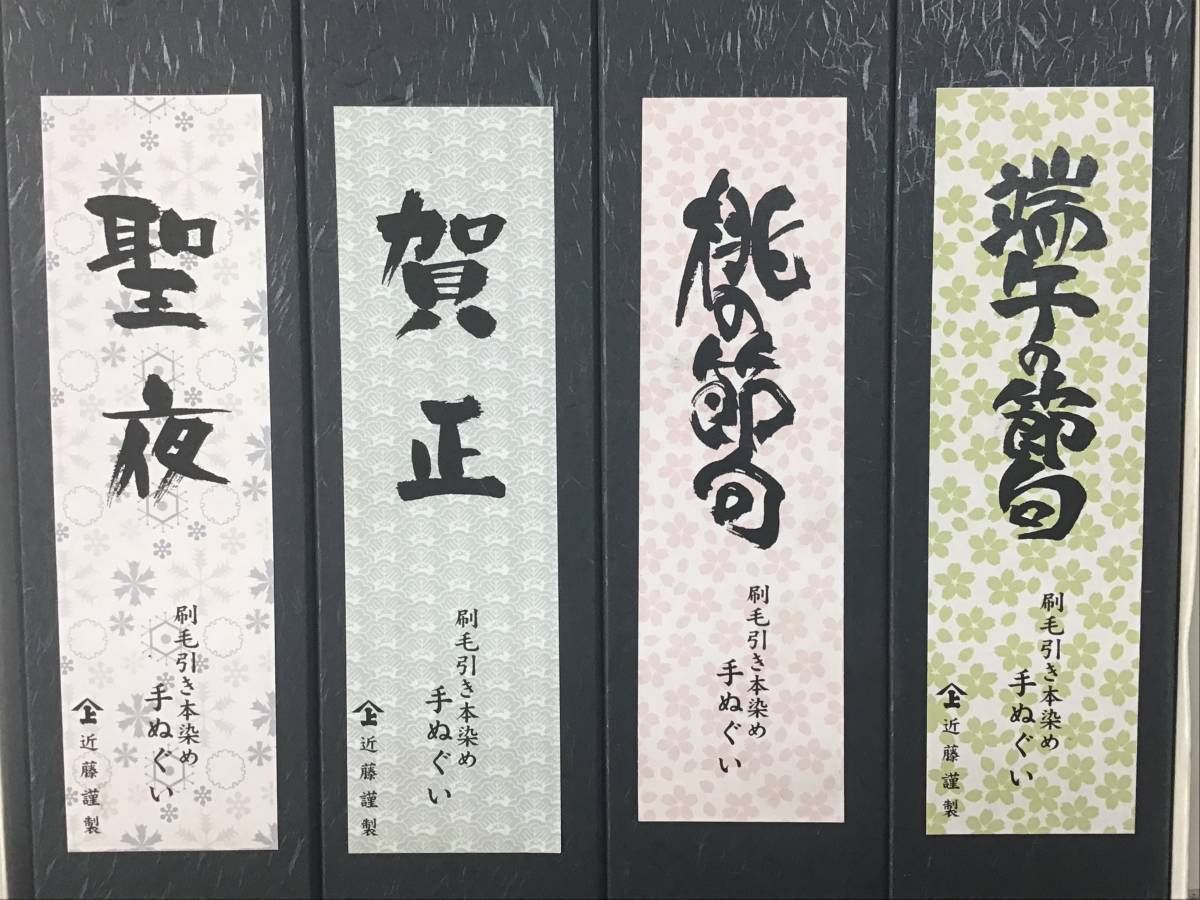 聖夜
刷毛引き本染め
手ぬぐい
上近藤謹製
賀正
刷毛引き本染め
手ぬぐい
上近藤謹製
桃の節句
刷毛引き本染め
手ぬぐい
端午の節句
刷毛引き本染め
手ぬぐい
上近藤謹製